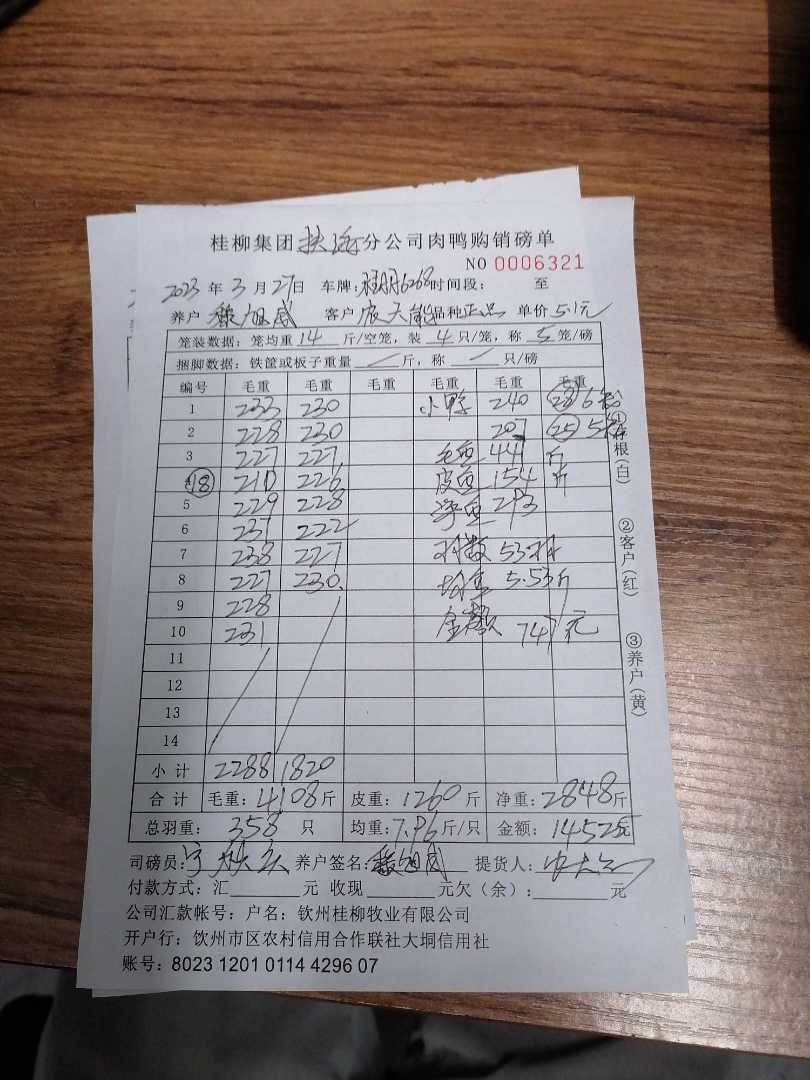 桂柳集团扶绥分公司肉鸭购销磅单
NO 0006321
2023 年 3 月 27 日 车牌: 6268 时间段: 至
养户 客户 品种 正品 单价 5.1元
笼装数据: 笼均重 14 斤/空笼, 装 4 只/笼, 称 5 笼/磅
捆脚数据: 铁筐或板子重量 / 斤, 称 / 只/磅
编号 毛重 毛重 毛重 毛重 毛重 毛重
1 233 230 小鸭 240 (28) 6
2 228 230 207 (25) 5
3 227 227 毛重 447 斤
4 (18) 210 226 皮重 154 斤
5 229 228 净重 293
6 237 222
7 238 227 只数 53只
8 227 230 均重 5.53斤
9 228
10 231 金额 747元
11
12
13
14
小计 2288 1820
合计 毛重: 4108 斤 皮重: 1260 斤 净重: 2848 斤
总羽重: 358 只 均重: 7.96 斤/只 金额: 14525元
司磅员: 养户签名: 提货人:
付款方式: 汇 元 收现 元欠(余): 元
公司汇款帐号: 户名: 钦州桂柳牧业有限公司
开户行: 钦州市区农村信用合作联社大垌信用社
账号: 8023 1201 0114 4296 07
①存根(白)
②客户(红)
③养户(黄)